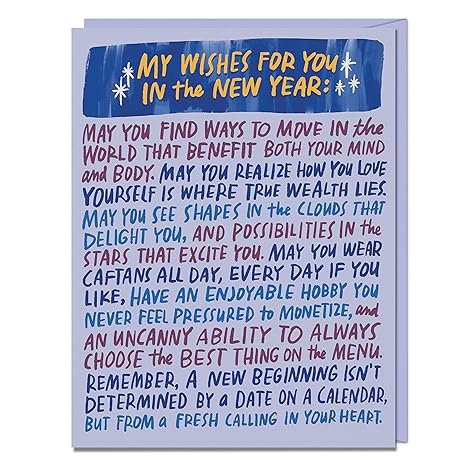 MY WISHES FOR YOU
IN the NEW YEAR:
MAY YOU FIND WAYS TO MOVE IN the
WORLD THAT BENEFIT BOTH YOUR MIND
and BODY. MAY YOU REALIZE HOW YOU LOVE
YOURSELF IS WHERE TRUE WEALTH LIES.
MAY YOU SEE SHAPES IN the CLOUDS THAT
DELIGHT YOU, AND POSSIBILITIES IN the
STARS THAT EXCITE YOU. MAY YOU WEAR
CAFTANS ALL DAY, EVERY DAY IF YOU
LIKE, HAVE AN ENJOYABLE HOBBY YOU
NEVER FEEL PRESSURED to MONETIZE, and
AN UNCANNY ABILITY TO ALWAYS
CHOOSE the BEST THING ON the MENU.
REMEMBER, A NEW BEGINNING ISN'T
DETERMINED BY a DATE ON A CALENDAR,
BUT FROM a FRESH CALLING IN YOUR HEART.